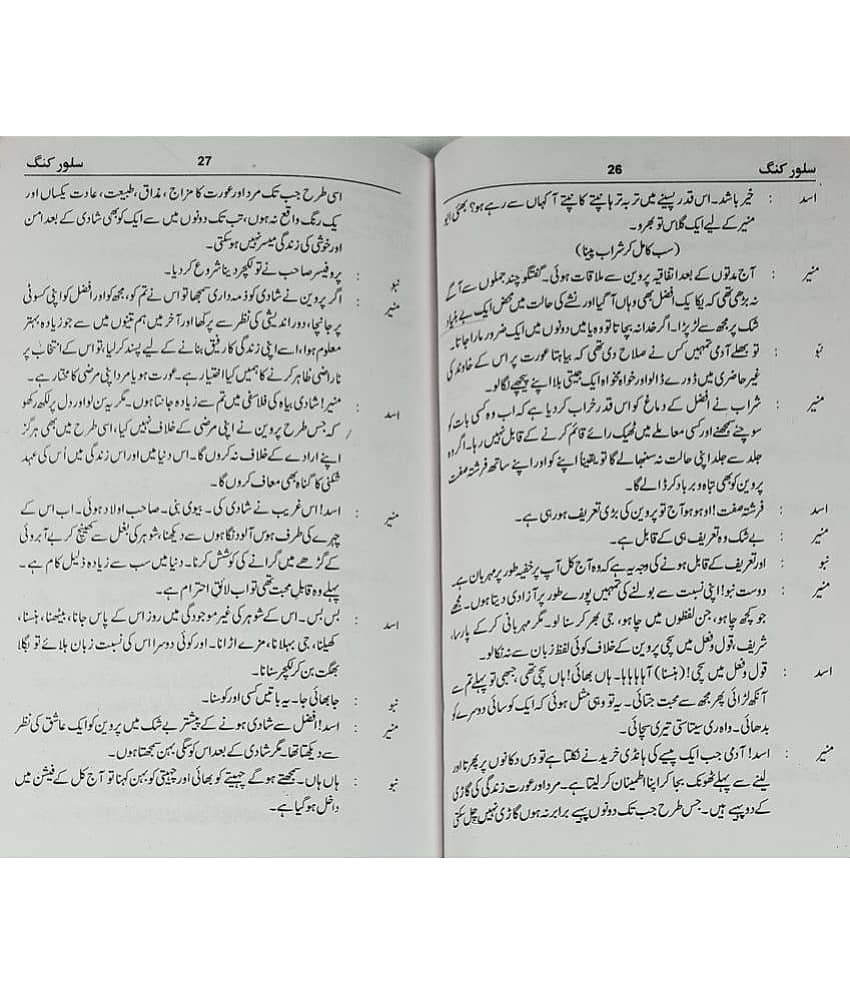 سلور کنگ 26
اسد : خیر باشد۔ اس قدر پسینے میں تر بہ تر ہانپتے کانپتے آ کہاں سے رہے ہو؟ بھئی
منیر کے لیے ایک گلاس تو بھرو۔
(سب کا مل کر شراب پینا)
منیر : آج مدتوں کے بعد اتفاقیہ پروین سے ملاقات ہوئی۔ گفتگو چند جملوں سے آگے
نہ بڑھی تھی کہ یکایک افضل بھی وہاں آ گیا اور نشے کی حالت میں محض ایک بے بنیاد
شک پر مجھ سے لڑ پڑا۔ اگر خدا نہ بچاتا تو وہ یا میں دونوں میں ایک ضرور مارا جاتا۔
نبو : تو بھلے آدمی تمہیں کس نے صلاح دی تھی کہ بیاہتا عورت پر اس کے خاوند کی
غیر حاضری میں ڈورے ڈالو اور خواہ مخواہ ایک جیتی بلا اپنے پیچھے لگا لو۔
منیر : شراب نے افضل کے دماغ کو اس قدر خراب کر دیا ہے کہ اب وہ کسی بات کو
سوچنے سمجھنے اور کسی معاملے میں ٹھیک رائے قائم کرنے کے قابل نہیں رہا۔ اگر وہ
جلد سے جلد اپنی حالت نہ سنبھالے گا تو یقیناً اپنے کو اور اپنے ساتھ فرشتہ صفت
پروین کو بھی تباہ و برباد کر ڈالے گا۔
اسد : فرشتہ صفت! اوہو ہو آج تو پروین کی بڑی تعریف ہو رہی ہے۔
منیر : بے شک وہ تعریف ہی کے قابل ہے۔
نبو : اور تعریف کے قابل ہونے کی وجہ یہ ہے کہ وہ آج کل آپ پر خفیہ طور پر مہربان ہے۔
منیر : دوست نبو! اپنی نسبت سے بولنے کی تمہیں پورے طور پر آزادی دیتا ہوں۔ مجھے
جو کچھ چاہو، جن لفظوں میں چاہو، جی بھر کر سنا لو۔ مگر مہربانی کر کے پارسا،
شریف، قول و فعل میں سچی پروین کے خلاف کوئی لفظ زبان سے نہ نکالو۔
اسد : قول و فعل میں سچی! (ہنسنا) آہاہاہا۔ ہاں بھائی! ہاں سچی تھی، جبھی تو پہلے تم سے
آنکھ لڑائی پھر مجھ سے محبت جتائی۔ یہ تو وہی مثل ہوئی کہ ایک کو سائی دوسرے کو
بدھائی۔ واہ ری ستیا ستی تیری سچائی۔
منیر : اسد! آدمی جب ایک پیسے کی ہانڈی خریدنے نکلتا ہے تو دس دکانوں پر پھرتا اور
لینے سے پہلے ٹھونک بجا کر اپنا اطمینان کر لیتا ہے۔ مرد اور عورت زندگی کی گاڑی
کے دو پہیے ہیں۔ جس طرح جب تک دونوں پہیے برابر نہ ہوں گاڑی نہیں چل سکتی
27 سلور کنگ
اسی طرح جب تک مرد اور عورت کا مزاج، مذاق، طبیعت، عادت یکساں اور
یک رنگ واقع نہ ہوں، تب تک دونوں میں سے ایک کو بھی شادی کے بعد امن
اور خوشی کی زندگی میسر نہیں ہو سکتی۔
نبو : پروفیسر صاحب نے تو لکچر دینا شروع کر دیا۔
منیر : اگر پروین نے شادی کو ذمہ داری سمجھا تو اس نے تم کو، مجھ کو اور افضل کو اپنی کسوٹی
پر جانچا، دور اندیشی کی نظر سے پرکھا اور آخر میں ہم تینوں میں سے جو زیادہ بہتر
معلوم ہوا، اسے اپنی زندگی کا رفیق بنانے کے لیے پسند کر لیا، تو اس کے انتخاب پر
ناراضی ظاہر کرنے کا ہمیں کیا اختیار ہے۔ عورت ہو یا مرد اپنی مرضی کا مختار ہے۔
اسد : منیر! شادی بیاہ کی فلاسفی میں تم سے زیادہ جانتا ہوں۔ مگر یہ سن لو اور دل پر لکھ رکھو
کہ جس طرح پروین نے اپنی مرضی کے خلاف نہیں کیا، اسی طرح میں بھی ہرگز
اپنے ارادے کے خلاف نہ کروں گا۔ اس دنیا میں اور اس زندگی میں اُس کی عہد
شکنی کا گناہ بھی معاف کروں گا۔
منیر : اسد! اس غریب نے شادی کی۔ بیوی بنی۔ صاحب اولاد ہوئی۔ اب اس کے
چہرے کی طرف ہوس آلود نگاہوں سے دیکھنا، شوہر کی بغل سے کھینچ کر بے آبروئی
کے گڑھے میں گرانے کی کوشش کرنا۔ دنیا میں سب سے زیادہ ذلیل کام ہے۔
پہلے وہ قابل محبت تھی تو اب لائق احترام ہے۔
اسد : بس بس۔ اس کے شوہر کی غیر موجودگی میں روز اس کے پاس جانا، بیٹھنا، ہنسنا،
کھیلنا، جی بہلانا، مزے اڑانا۔ اور کوئی دوسرا اس کی نسبت زبان ہلائے تو بگلا
بھگت بن کر لکچر سنانا۔
نبو : جا بھائی جا۔ یہ باتیں کسی اور کو سنا۔
منیر : اسد! افضل سے شادی ہونے کے پیشتر بے شک میں پروین کو ایک عاشق کی نظر
سے دیکھتا تھا۔ مگر شادی کے بعد اس کو سگی بہن سمجھتا ہوں۔
نبو : ہاں ہاں۔ سمجھتے ہو گے چہیتے کو بھائی اور چہیتی کو بہن کہنا تو آج کل کے فیشن میں
داخل ہو گیا ہے۔